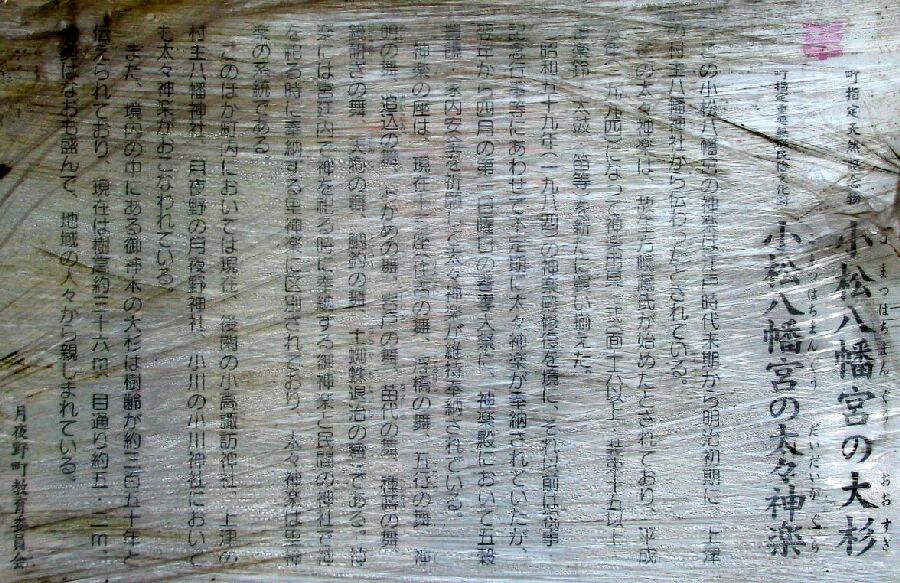 町指定天然記念物
小松八幡宮の大杉
こまつはちまんぐう おおすぎ
町指定重要無形民俗文化財
小松八幡宮の太々神楽
だいだいかぐら
この小松八幡宮の神楽は江戸時代末期から明治初期に、上津
の村主八幡神社から伝わったとされている。
この太々神楽は、
氏が始めたとされており、平成
六年(一九九四)になって神楽
面十六以上、装束十五以上、
神楽鈴、太鼓、笛等を新たに買い揃えた。
昭和五十九年(一九八四)の神楽殿修復を境に、それ以前は何事
記念行事等にあわせて不定期に太々神楽が奉納されていたが、
年から四月の第二日曜日の春季大祭に、神楽殿において五穀
豊穣、家内安全を祈願して太々神楽が維持奉納されている。
神楽の座は、現在十二座
の舞、岩橋の舞、五行の舞、
の舞、追込の舞、おかめの舞、岩戸の舞、苗代の舞、種蒔の舞、
の舞、天狐の舞、
の舞、土蜘蛛退治の舞である。神
楽には宮廷内で神を祀る時に奉納する御神楽と民間の神社で神
を祀る時に奉納する里神楽に区別されており、太々神楽は里神
楽の系統である。
このほか町内においては現在、後閑の小高諏訪神社、上津の
村主八幡神社、月夜野の月夜野神社、小川の小川神社において
も太々神楽がおこなわれている。
また、境内の中にある御神木の大杉は樹齢が約三百五十年と
伝えられており、現在は樹高約三十六m、目通り約五・二m、
はなおも盛んで、地域の人々から親しまれている。
月夜野町教育委員会